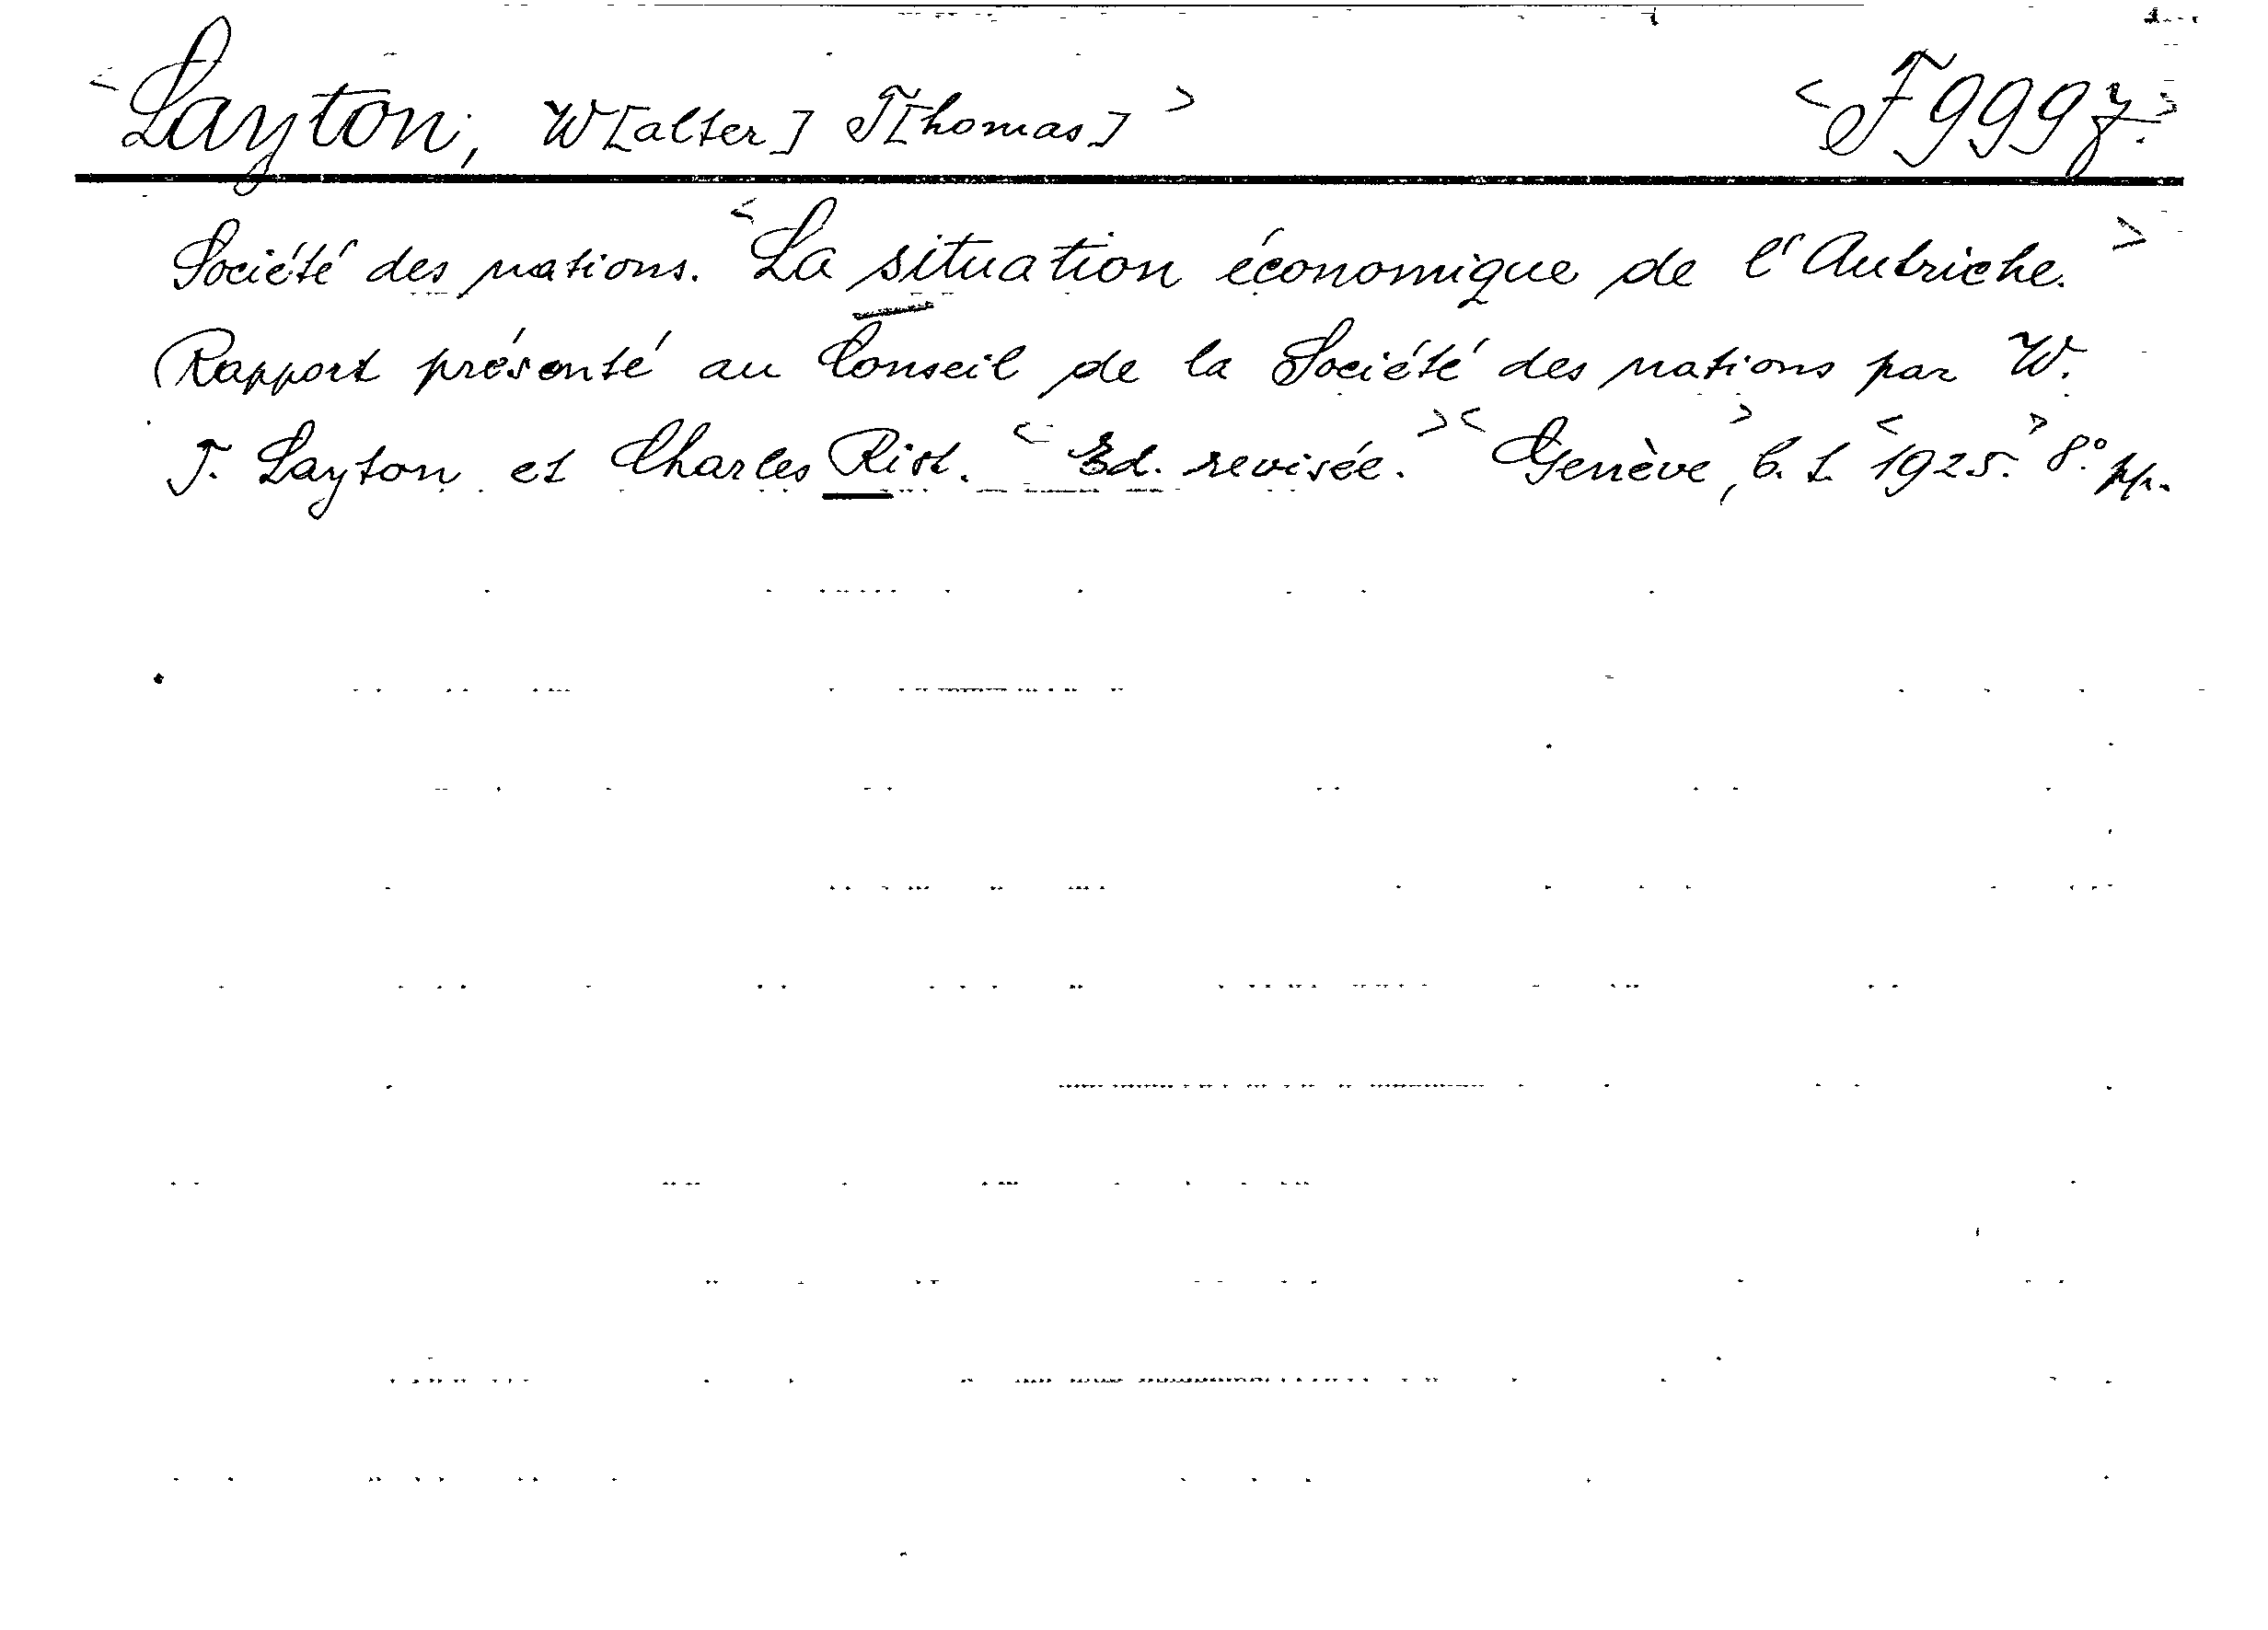 <Layton, W[alter] T[homas]> <F 9997.>
Société des nations. <La situation économique de l'Autriche.>
Rapport présenté au Conseil de la Société des nations par W.
T. Layton et Charles Rist. <Ed. revisée.> <Genève>, <1925.> 8.°